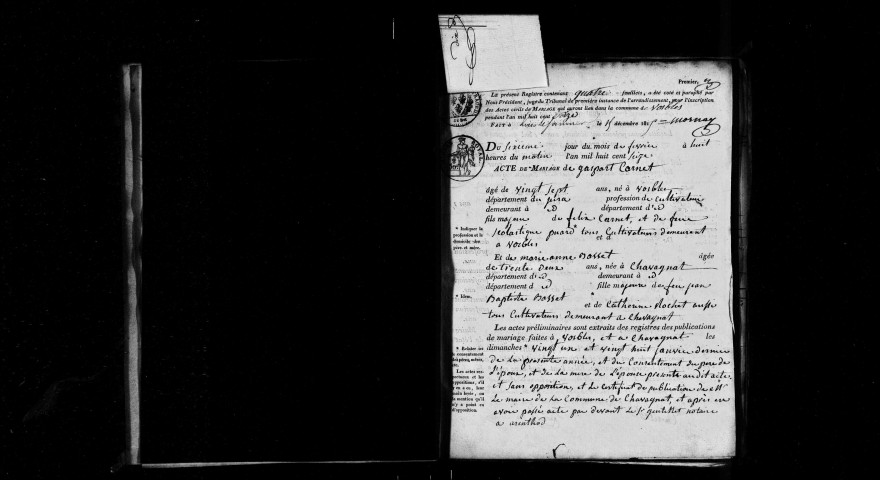 Premier,
Le présent Registre contenant quatre feuillets, a été coté et paraphé par
Nous Président, juge du Tribunal de première instance de l'arrondissement, pour l'inscription
des Actes civils de MARIAGE qui auront lieu dans la commune de Vosbles
pendant l'an mil huit cent seize
FAIT à Lons le Saunier le 15 décembre 181
DU sixieme jour du mois de fevrier à huit
heures du matin l'an mil huit cent seize
ACTE DE MARIAGE de gaspart Cornet
âgé de vingt sept ans, né à vosbles
département du jura profession de cultivateur
demeurant à id département d' id
fils majeur de felix Cornet, et de feue
scolastique puard tous Cultivateurs demeurant
et d
a vosbles
Et de marie anne Bosset âgée
de trente deux ans, née à Chavagnat
département d' id demeurant à id
département d id fille majeure de feu jean
Baptiste Bosset et de Catherine Rochet aussi
tous Cultivateurs demeurant a Chavagnat
Les actes préliminaires sont extraits des registres des publications
de mariage faites à vosbles, et a Chavagnat les
dimanches vingt un et vingt huit janvier dernier
de la presente année, et du Consentement du pere de
l'epoux, et de la mere de l'epouse presents audit acte
et sans opposition, et le certificat de publication de Mr
Le maire de la Commune de Chavagnat, et après en
avoir passé acte par devant le Sr notaire
a
* Indiquer la
profession et le
domicile des
père et mère.
* Idem.
* Relater ici
le consentement